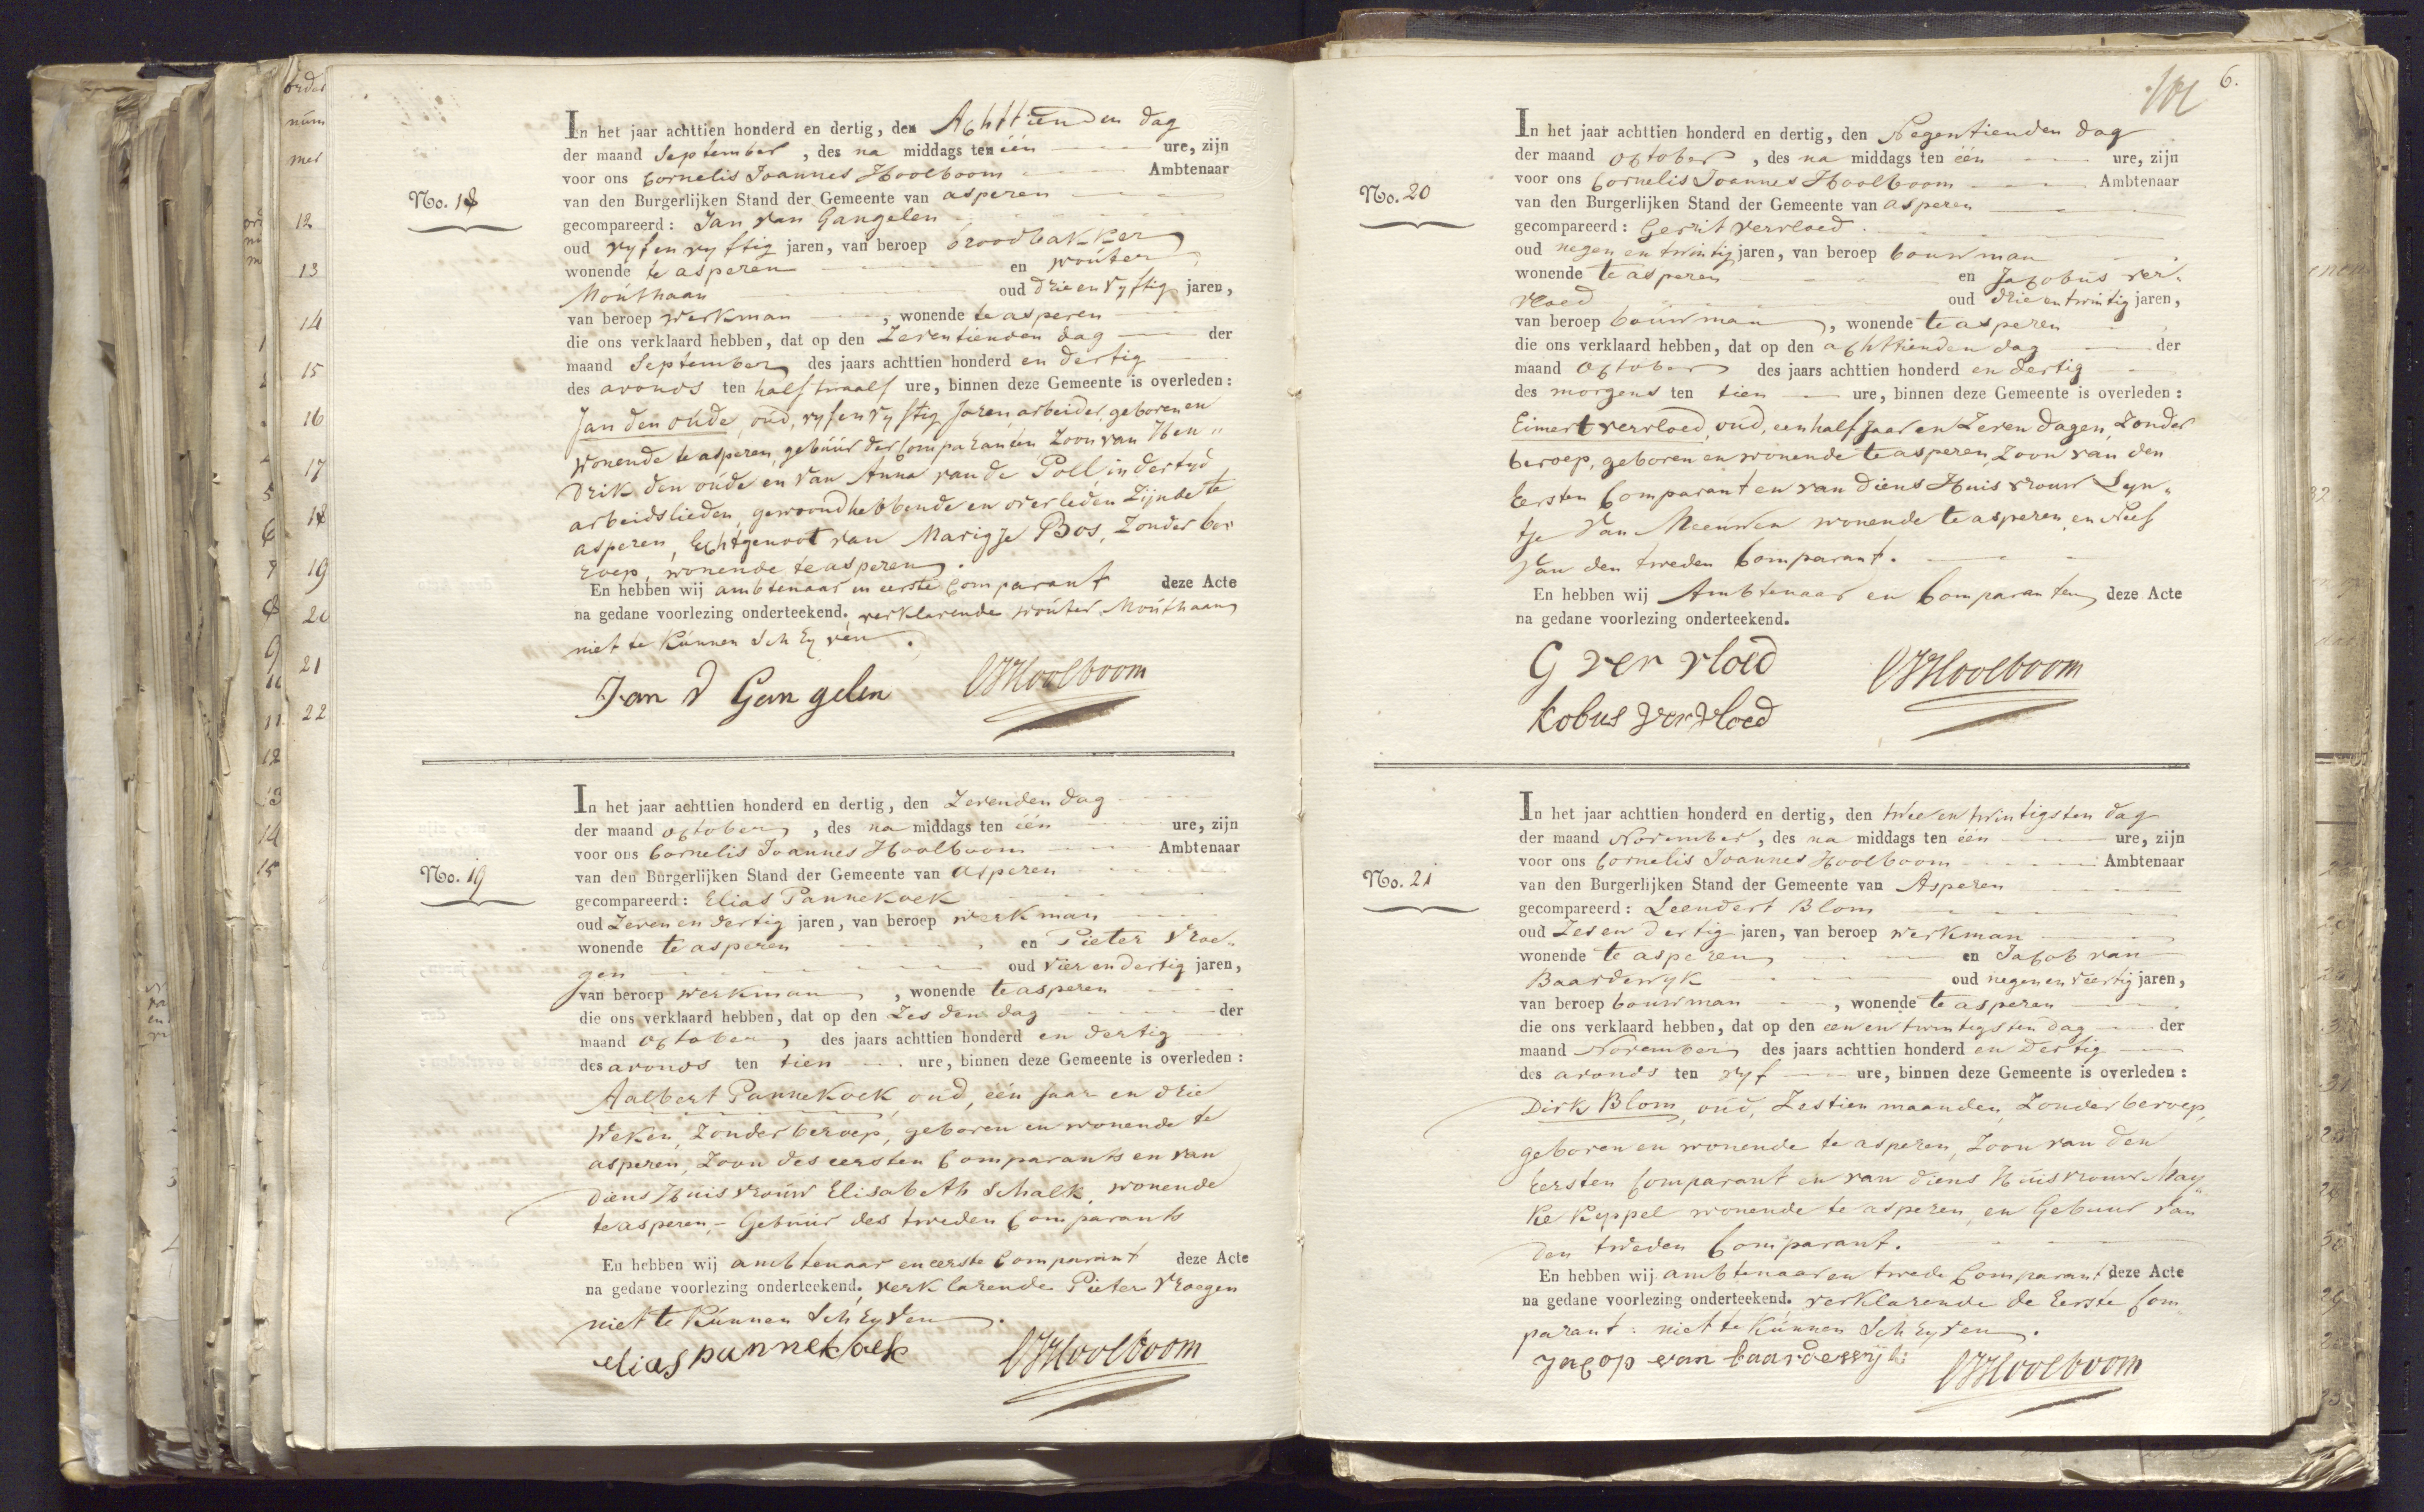 orde
num
mer
12
13
14
15
16
17
18
19
20
21
22
No. 18
In het jaar achttien honderd en dertig, den Achttienden dag
der maand September, des na middags ten één ure, zijn
voor ons Cornelis Joannes Hoolboom Ambtenaar
van den Burgerlijken Stand der Gemeente van asperen
gecompareerd: Jan van Gangelen
oud vyf en vyftig jaren, van beroep broodbakker
wonende te asperen en wouter
Mouthaan oud drie en vyftig jaren,
van beroep werkman, wonende te asperen
die ons verklaard hebben, dat op den Zeventienden dag der
maand September des jaars achttien honderd en dertig
des avonds ten half twaalf ure, binnen deze Gemeente is overleden:
Jan den oude, oud, vyf en vyftig Jaren, arbeider, geboren en
wonende te asperen, gebuur der Comparanten Zoon van Hen„
drik den oude en van Anna van de Poll, in der tyd
arbeidslieden, gewoond hebbende en overleden Zijnde te
asperen, Echtgenoot van Marigje Bos, Zonder be
roep, wonende te asperen.
En hebben wij ambtenaar en eerste Comparant deze Acte
na gedane voorlezing onderteekend, verklarende wouter Mouthaan
niet te kunnen Schryven.
Jan v Gangelen CJHoolboom
No. 19
In het jaar achttien honderd en dertig, den Zevenden dag
der maand october, des na middags ten één ure, zijn
voor ons Cornelis Joannes Hoolboom Ambtenaar
van den Burgerlijken Stand der Gemeente van asperen
gecompareerd: Elias Pannekoek
oud Zeven en dertig jaren, van beroep werkman
wonende te asperen en Pieter Vroe„
gen oud vier en dertig jaren,
van beroep werkman, wonende te asperen
die ons verklaard hebben, dat op den Zesden dag der
maand october, des jaars achttien honderd en dertig
des avonds ten tien ure, binnen deze Gemeente is overleden:
Aalbert Pannekoek, oud, één Jaar en drie
Weken, Zonder beroep, geboren en wonende te
asperen, Zoon des eersten Comparants en van
diens Huisvrouw Elisabeth Schalk, wonende
te asperen,- Gebuur des tweden Comparants
En hebben wij ambtenaar en eerste Comparant deze Acte
na gedane voorlezing onderteekend. verklarende Pieter Vroegen
niet te kunnen Schryven.
elias pannekoek CJHoolboom
6.
No. 20
In het jaar achttien honderd en dertig, den Negentienden dag
der maand october, des na middags ten één ure, zijn
voor ons Cornelis Joannes Hoolboom Ambtenaar
van den Burgerlijken Stand der Gemeente van asperen
gecompareerd: Gerrit Vervloed.
oud negen en twintig jaren, van beroep bouwman
wonende te asperen en Jacobus ver„
vloed oud drie en twintig jaren,
van beroep bouwman, wonende te asperen
die ons verklaard hebben, dat op den achttienden dag der
maand October des jaars achttien honderd en dertig
des morgens ten tien ure, binnen deze Gemeente is overleden:
Eimert vervloed, oud, een half jaar en Zeven dagen, Zonder
beroep, geboren en wonende te asperen, Zoon van den
Eersten Comparant en van diens Huisvrouw Lyn„
tje Van Meeuwen wonende te asperen, en Neef
Van den tweden Comparant.
En hebben wij Ambtenaar en Comparanten deze Acte
na gedane voorlezing onderteekend.
G ver vloed CJHoolboom
kobus vervloed
No. 21
In het jaar achttien honderd en dertig, den twee en twintigsten dag
der maand November, des na middags ten één ure, zijn
voor ons Cornelis Joannes Hoolboom Ambtenaar
van den Burgerlijken Stand der Gemeente van Asperen
gecompareerd: Leendert Blom
oud Zes en dertig jaren, van beroep werkman
wonende te asperen en Jacob van
Baardewyk oud negen en veertig jaren,
van beroep bouwman, wonende te asperen
die ons verklaard hebben, dat op den een en twintigsten dag der
maand November des jaars achttien honderd en dertig
des avonds ten vyf ure, binnen deze Gemeente is overleden:
Dirk Blom, oud, Zestien maanden, Zonder beroep,
geboren en wonende te asperen, Zoon van den
Eersten Comparant en van diens Huisvrouw May„
ke Keppel wonende te asperen, en Gebuur van
den tweden Comparant.
En hebben wij ambtenaar en twede Comparant deze Acte
na gedane voorlezing onderteekend. verklarende de Eerste Com„
parant: niet te kunnen Schryven.
Jacop van baardewijk CJHoolboom